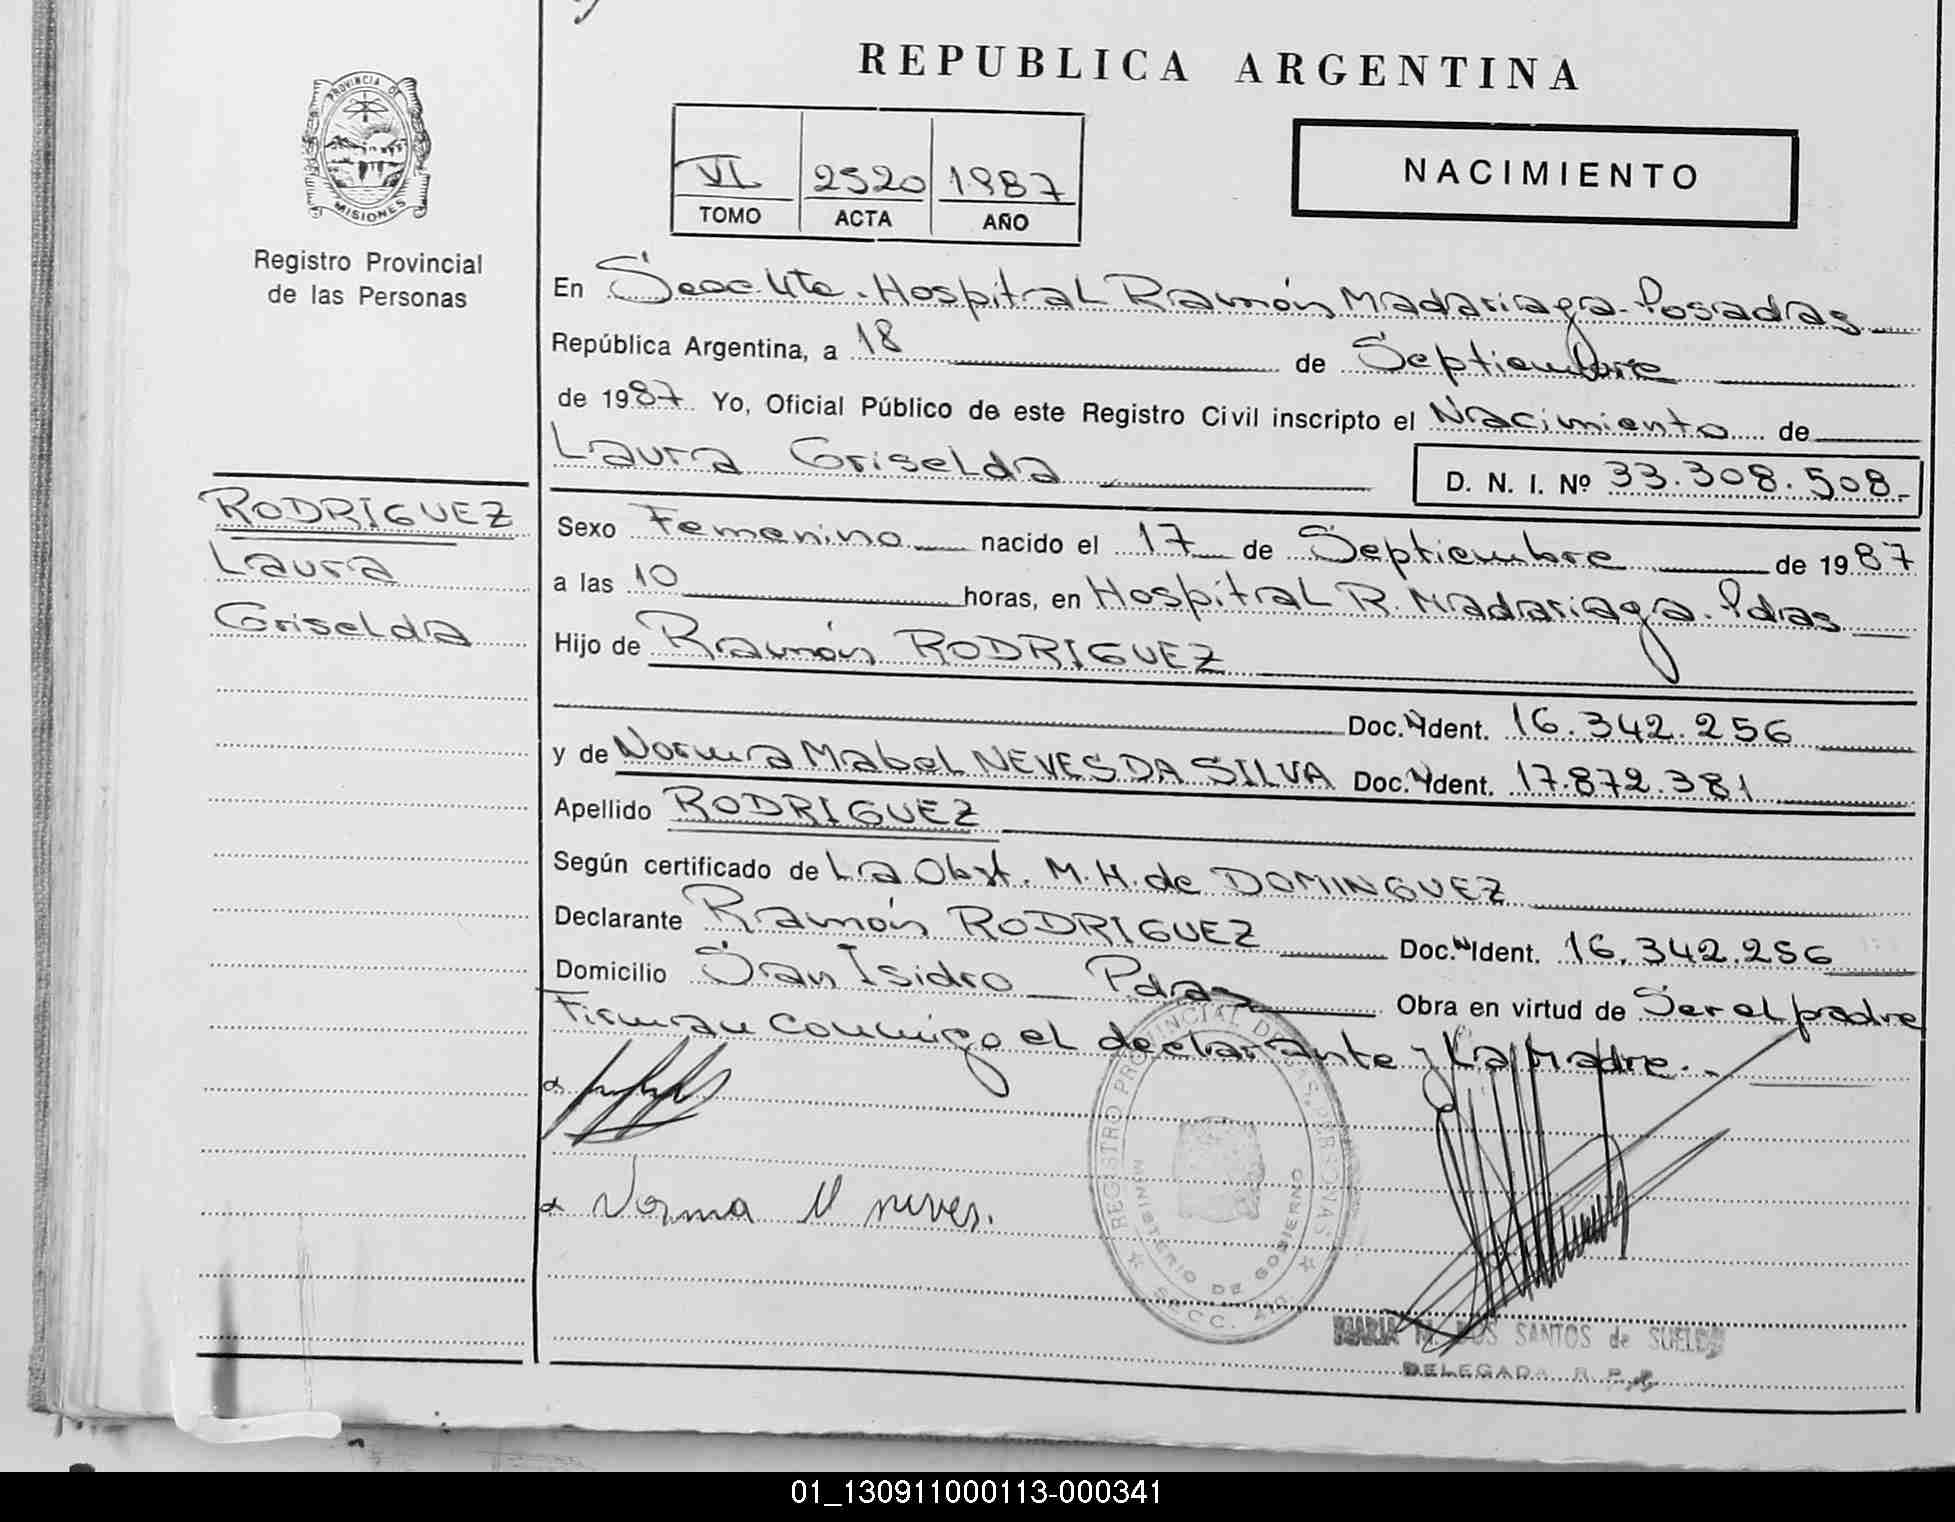 REPUBLICA ARGENTINA
PROVINCIA DE
MISIONES
Registro Provincial
de las Personas
VI 2520 1987
TOMO ACTA AÑO
NACIMIENTO
En Hospital Ramón Madariaga - Posadas
República Argentina, a 18 de Septiembre
de 1987 Yo, Oficial Público de este Registro Civil inscripto el Nacimiento de
Laura Griselda
D. N. I. Nº 33.308.508-
RODRIGUEZ
Laura
Griselda
Sexo Femenino nacido el 17 de Septiembre de 1987
a las 10 horas, en Hospital R. Madariaga - Pdas
Hijo de Ramón RODRIGUEZ
Doc. Ident. 16.342.256
y de Norma Mabel NEVES DA SILVA Doc. Ident. 17.872.381
Apellido RODRIGUEZ
Según certificado de La Obst. M.H. de DOMINGUEZ
Declarante Ramón RODRIGUEZ Doc. Ident. 16.342.256
Domicilio San Isidro Pdas Obra en virtud de Ser el padre
Firman conmigo el declarante y La Madre.
Norma M neves.
REGISTRO PROVINCIAL DE LAS PERSONAS
MINISTERIO DE GOBIERNO
MARIA M. DOS SANTOS de SUELDO
DELEGADA R. P. P.
01_130911000113-000341